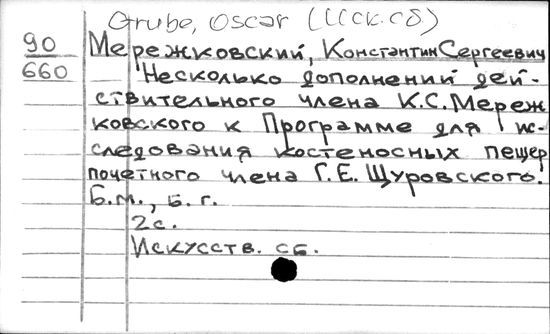 Grube, Oscar (Иск.сб)
90
660
Мережковский, Константин Сергеевич
Несколько дополнений дей-
ствительного члена К.С. Мереж
ковского к Программе для ис-
следования костеносных пещер
почетного члена Г.Е. Щуровского.
Б.м., Б.г.
2с.
Искусств. сб.